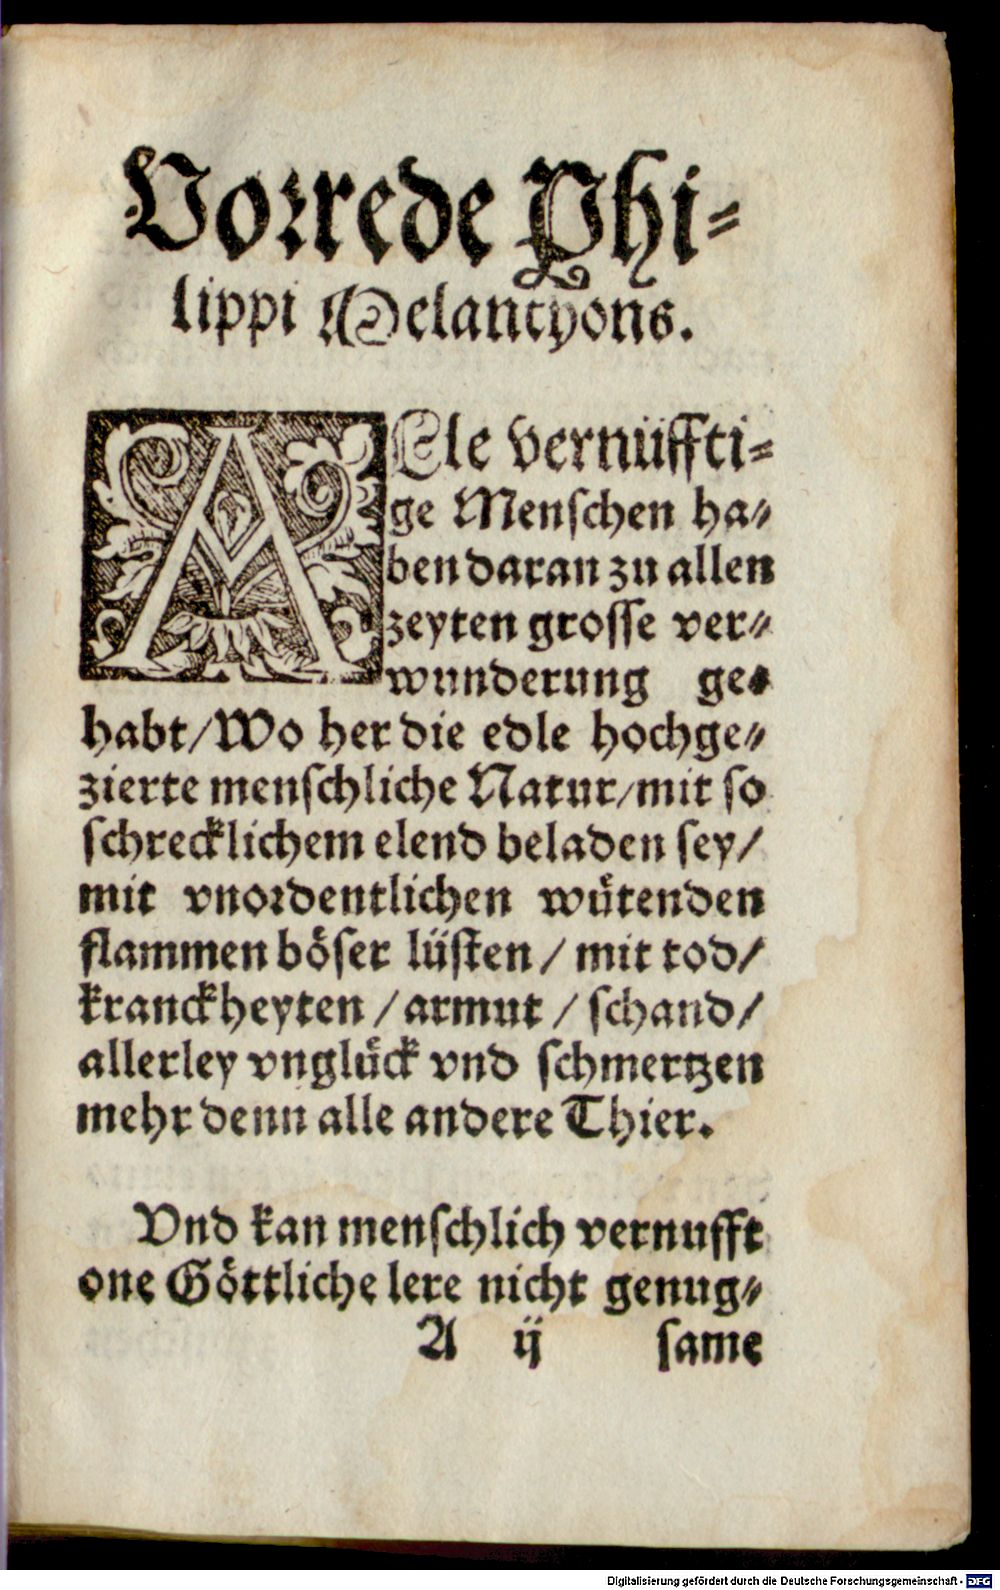 Vorrede Phi-
lippi Melanthons.
ALle vernüffti-
ge Menschen ha-
ben daran zu allen
zeyten grosse ver-
wunderung ge-
habt/Wo her die edle hochge-
zierte menschliche Natur/mit so
schrecklichem elend beladen sey/
mit vnordentlichen wütenden
flammen böser lüsten / mit tod/
kranckheyten / armut / schand/
allerley vnglück vnd schmertzen
mehr denn alle andere Thier.
Vnd kan menschlich vernufft
one Göttliche lere nicht genug-
A ij same
Digitalisierung gefördert durch die Deutsche Forschungsgemeinschaft - DFG